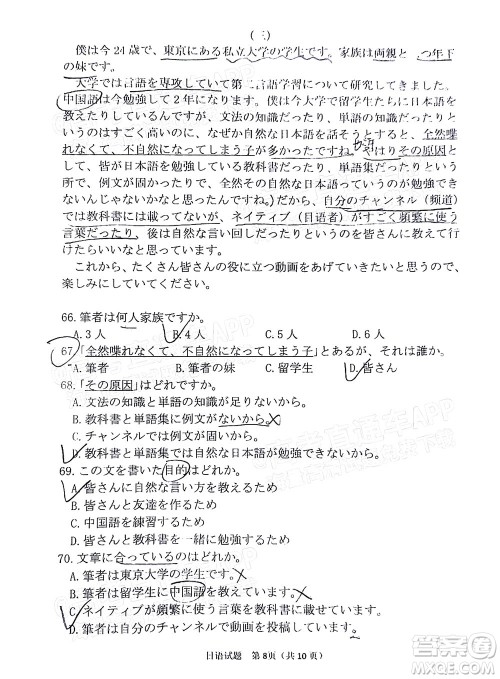 (三)
僕は今24歳で、東京にある私立大学の学生です。家族は両親と二つ年下
の妹です。
大学では言語を専攻していて第二言語学習について研究してきました。
中国語は今勉強して2年になります。僕は今大学で留学生たちに日本語を
教えたりしているんですが、文法の知識だったり、単語の知識だったりと
いうのはすごく高いのに、なぜか自然な日本語を話そうとすると、全然喋
れなくて、不自然になってしまう子が多かったですね。やはりその原因と
して、皆が日本語を勉強している教科書だったり、単語集だったりという
のが、例文がなくて自然な日本語が使われていないっていうのが勉強できない
だから、自分のチャンネル(频道)
では教科書には載ってないが、ネイティブ(目语者)がすごく頻繁に使う
言葉だったり、自然な言い回しだったりを皆さんに教えていきたいなと
いう風に思っています。
これから、たくさん皆さんの役に立つ動画をあげていきたいと思うので、
楽しみにしていてください。
66. 筆者は何人家族ですか。
A.3人 B.4人 C.5人 D.6人
67.「全然喋れなくて、不自然になってしまう子」とあるが、それはだれか。
A.筆者 B.筆者の妹 C.留学生 D.皆さん
68.「その原因」はどれですか。
A.文法の知識と単語の知識が多いから。
B.教科書と単語集に例文がないから。
C.チャンネルでは例文が固いから。
D.教科書と単語集では自然な日本語が勉強できないから。
69. この文を書いた目的はどれか。
A.皆さんに自然な言い方を教えるため
B.皆さんと友達を作るため
C.中国語を練習するため
D.皆さんと教科書を一緒に勉強するため
70. 文章に合っているのはどれか。
A.筆者は東京大学の学生です。
B.筆者は留学生に中国語を教えています。
C.ネイティブが頻繁に使う言葉を教科書に載せています。
D.筆者は自分のチャンネルで動画を投稿しています。
日语试题 第8页(共10页)